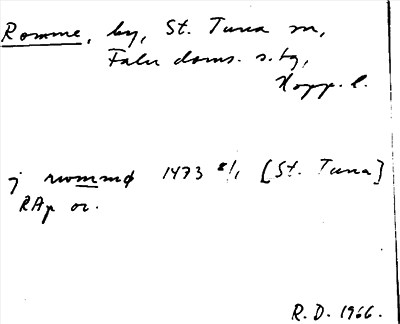 Romme, by, St. Tuna sn,
Falu doms. s:tg,
Kopp. l.
j rwmmø 1473 8/1 [St. Tuna]
RAp or.
R.D. 1966.